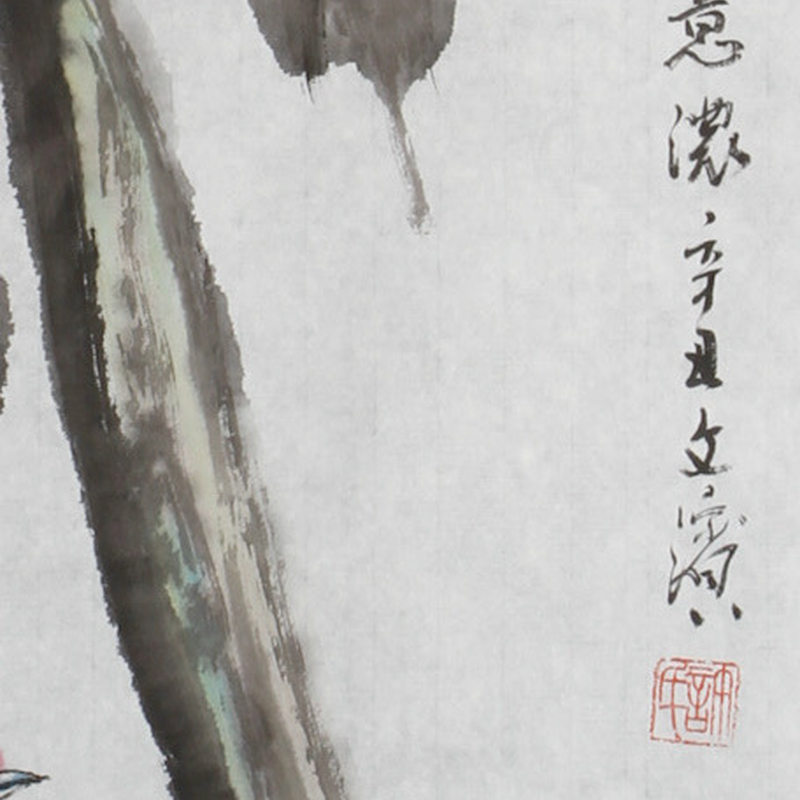 意濃辛丑文賓